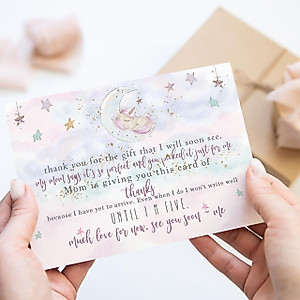 thank you for the gift that I will soon see,
my mom says it's so perfect and you picked it just for me.
Mom is giving you this card of
thanks
because I have yet to arrive. Even when I do I won't write well
UNTIL I'M FIVE.
much love for now, see you soon ~ me